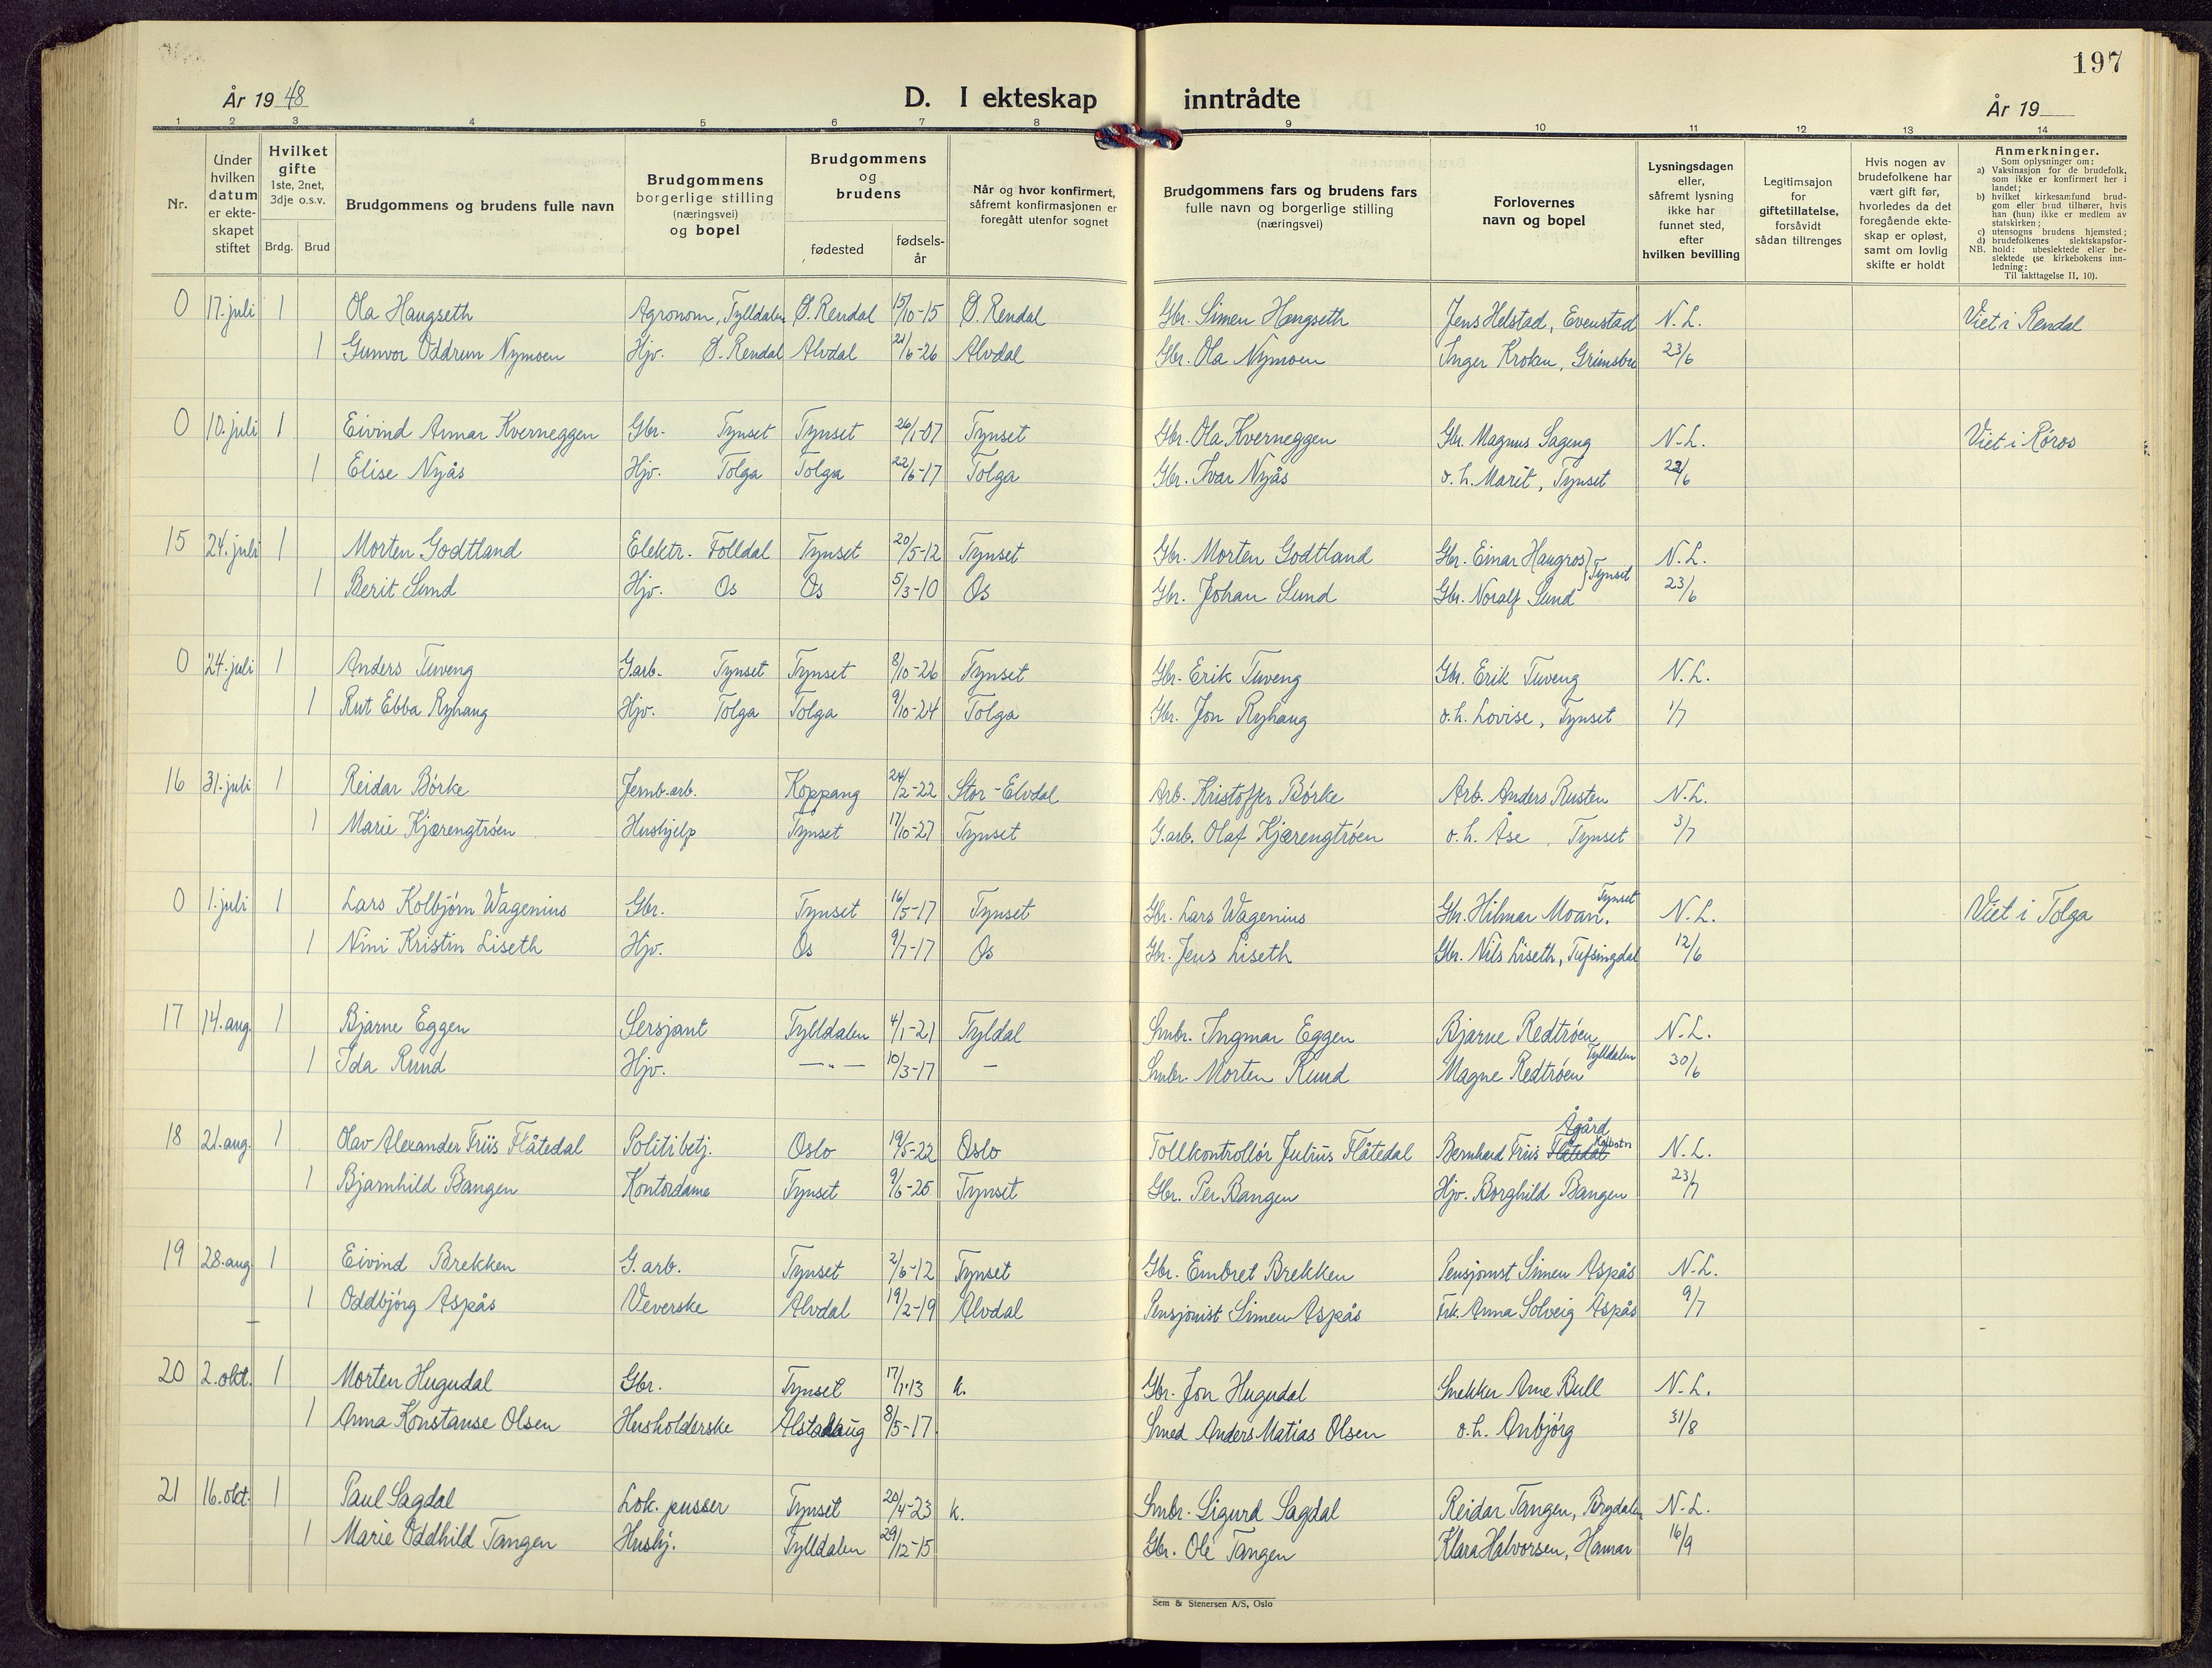 197
År 1948
D. I ekteskap inntrådte
År 19
1 2 3 4 5 6 7 8 9 10 11 12 13 14
Nr.
Under hvilken datum er ekte- skapet stiftet
Hvilket gifte 1ste, 2net, 3dje o.s.v.
Brdg. Brud
Brudgommens og brudens fulle navn
Brudgommens borgerlige stilling (næringsvei) og bopel
Brudgommens og brudens
fødested
fødsels- år
Når og hvor konfirmert, såfremt konfirmasjonen er foregått utenfor sognet
Brudgommens fars og brudens fars fulle navn og borgerlige stilling (næringsvei)
Forlovernes navn og bopel
Lysningsdagen eller, såfremt lysning ikke har funnet sted, efter hvilken bevilling
Legitimsajon for giftetillatelse, forsåvidt sådan tiltrenges
Hvis nogen av brudefolkene har vært gift før, hvorledes da det foregående ekte- skap er opløst, samt om lovlig skifte er holdt
Anmerkninger.
Som oplysninger om:
a) Vaksinasjon for de brudefolk, som ikke er konfirmert her i landet;
b) hvilket kirkesamfund brud- gom eller brud tilhører, hvis han (hun) ikke er medlem av statskirken;
c) utensogns brudens hjemsted;
d) brudefolkenes slektskapsfor-
NB. hold: ubeslektede eller be- slektede (se kirkebokens inn- ledning: Til iakttagelse II, 10).
0 17. juli 1 Ola Haugseth Agronom, Tylldalen Ø. Rendal 15/10-15 Ø. Rendal Gbr. Simen Haugseth Jens Helstad, Evenstad N.L. Viet i Rendal
1 Gunvor Oddrun Nymoen Hjv. Ø. Rendal Alvdal 21/6-26 Alvdal Gbr. Ola Nymoen Inger Kroken, Grimsbu 23/6
0 10. juli 1 Eivind Armar Kverneggen Gbr. Tynset Tynset 26/1-07 Tynset Gbr. Ola Kverneggen Gbr. Magnus Sageng N.L. Viet i Røros
1 Elise Nyås Hjv. Tolga Tolga 22/6-17 Tolga Gbr. Ivar Nyås o.h. Marit, Tynset 22/6
15 24. juli 1 Morten Godtland Elektr. Folldal Tynset 20/5-12 Tynset Gbr. Morten Godtland Gbr. Einar Haugros } Tynset N.L.
1 Berit Sund Hjv. Os Os 5/3-10 Os Gbr. Johan Sund Gbr. Noralf Sund 23/6
0 24. juli 1 Anders Tuveng G.arb. Tynset Tynset 8/10-26 Tynset Gbr. Erik Tuveng Gbr. Erik Tuveng N.L.
1 Rut Ebba Ryhaug Hjv. Tolga Tolga 9/10-24 Tolga Gbr. Jon Ryhaug o.h. Lovise, Tynset 1/7
16 31. juli 1 Reidar Børke Jernb.arb. Koppang 24/2-22 Stor-Elvdal Arb. Kristoffer Børke Arb. Anders Rusten N.L.
1 Marie Kjærengtrøen Hushjelp Tynset 17/10-27 Tynset G.arb. Olaf Kjærengtrøen o.h. Åse, Tynset 3/7
0 1. juli 1 Lars Kolbjørn Wagenius Gbr. Tynset 16/5-17 Tynset Gbr. Lars Wagenius Gbr. Hilmar Moan, Tynset N.L. Viet i Tolga
1 Nini Kristin Liseth Hjv. Os 9/7-17 Os Gbr. Jens Liseth Gbr. Nils Liseth, Tufsingdal 12/6
17 14. aug. 1 Bjarne Eggen Sersjant Tylldalen 4/1-21 Tyldal Smbr. Ingmar Eggen Bjarne Redtrøen N.L.
1 Ida Ruud Hjv. —"— 10/3-17 — Smbr. Morten Ruud Magne Redtrøen Tylldalen 30/6
18 21. aug. 1 Olav Alexander Friis Flåtedal Politibetj. Oslo 19/5-22 Oslo Tollkontrollør Julius Flåtedal Bernhard Friis Flåtedal Ågård Kolbotn N.L.
1 Bjarnhild Bangen Kontordame Tynset 9/6-25 Tynset Gbr. Per Bangen Hjv. Borghild Bangen 23/7
19 28. aug. 1 Eivind Brekken G.arb. Tynset 2/6-12 Tynset Gbr. Embret Brekken Pensjonist Simen Aspås N.L.
1 Oddbjørg Aspås Veverske Alvdal 19/2-19 Alvdal Pensjonist Simen Aspås Frk. Anna Solveig Aspås 9/7
20 2. okt. 1 Morten Hugudal Gbr. Tynset 17/1-13 k. Gbr. Jon Hugudal Snekker Arne Bull N.L.
1 Anna Konstanse Olsen Husholderske Alstahaug 8/5-17 Smed Anders Matias Olsen o.h. Anbjørg 31/8
21 16. okt. 1 Paul Sagdal Lok. pusser Tynset 20/4-23 k. Smbr. Sigurd Sagdal Reidar Tangen, N.L.
1 Marie Oddhild Tangen Hushj. Tylldalen 29/12-15 Gbr. Ole Tangen Klara Halvorsen, Hamar 16/9
Sem & Stenersen A/S, Oslo